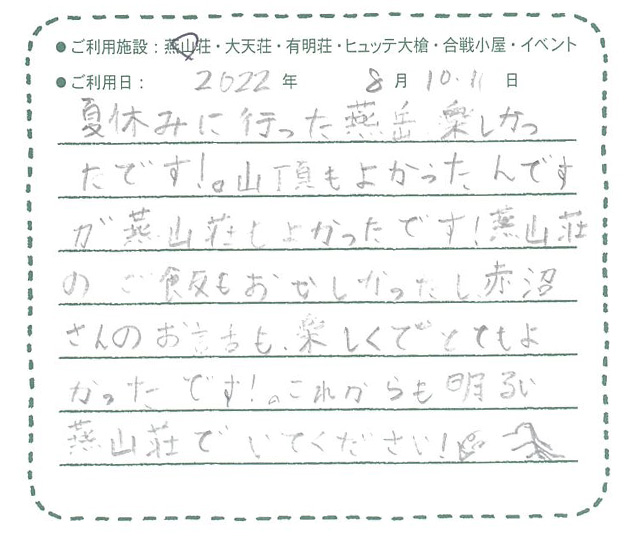 ● ご利用施設：燕山荘・大天荘・有明荘・ヒュッテ大槍・合戦小屋・イベント
● ご利用日： 2022 年 8 月 10.11 日
夏休みに行った燕岳、楽しかっ
たです!。山頂もよかったんです
が燕山荘もよかったです!燕山荘
のご飯もおいしかったし、赤沼
さんのお話も、楽しくてとてもよ
かったです!。これからも明るい
燕山荘でいてください!